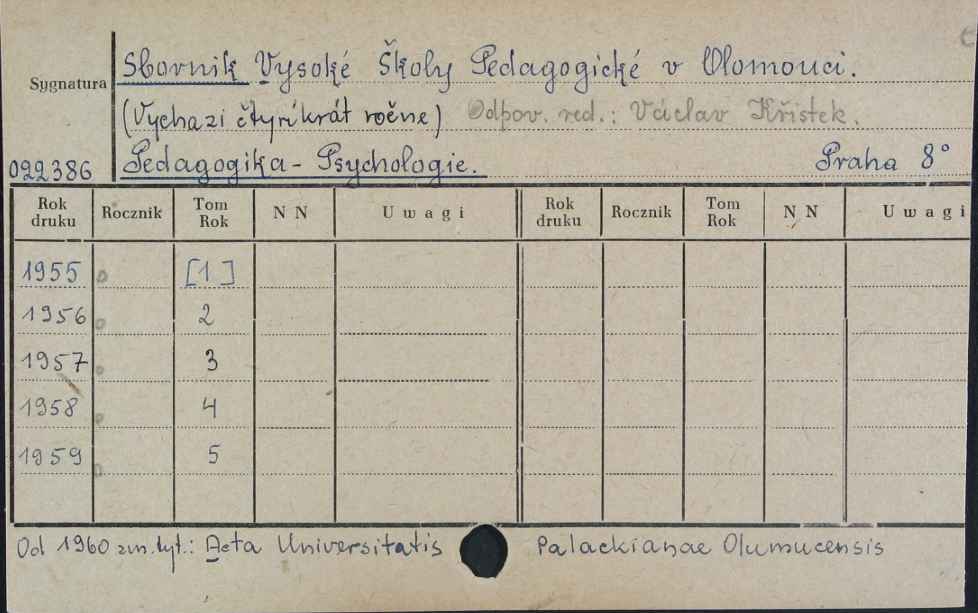 Sborník Vysoké Školy Pedagogické v Olomouci.
Sygnatura
(Vychazi čtyríkrát ročne) Odpov. red.: Václav Křístek.
022386 Pedagogika - Psychologie. Praha 8°
Rok druku Rocznik Tom Rok NN Uwagi Rok druku Rocznik Tom Rok NN Uwagi
1955 [1]
1956 2
1957 3
1958 4
1959 5
Od 1960 zm. tyt.: Acta Universitatis Palackianae Olumucensis